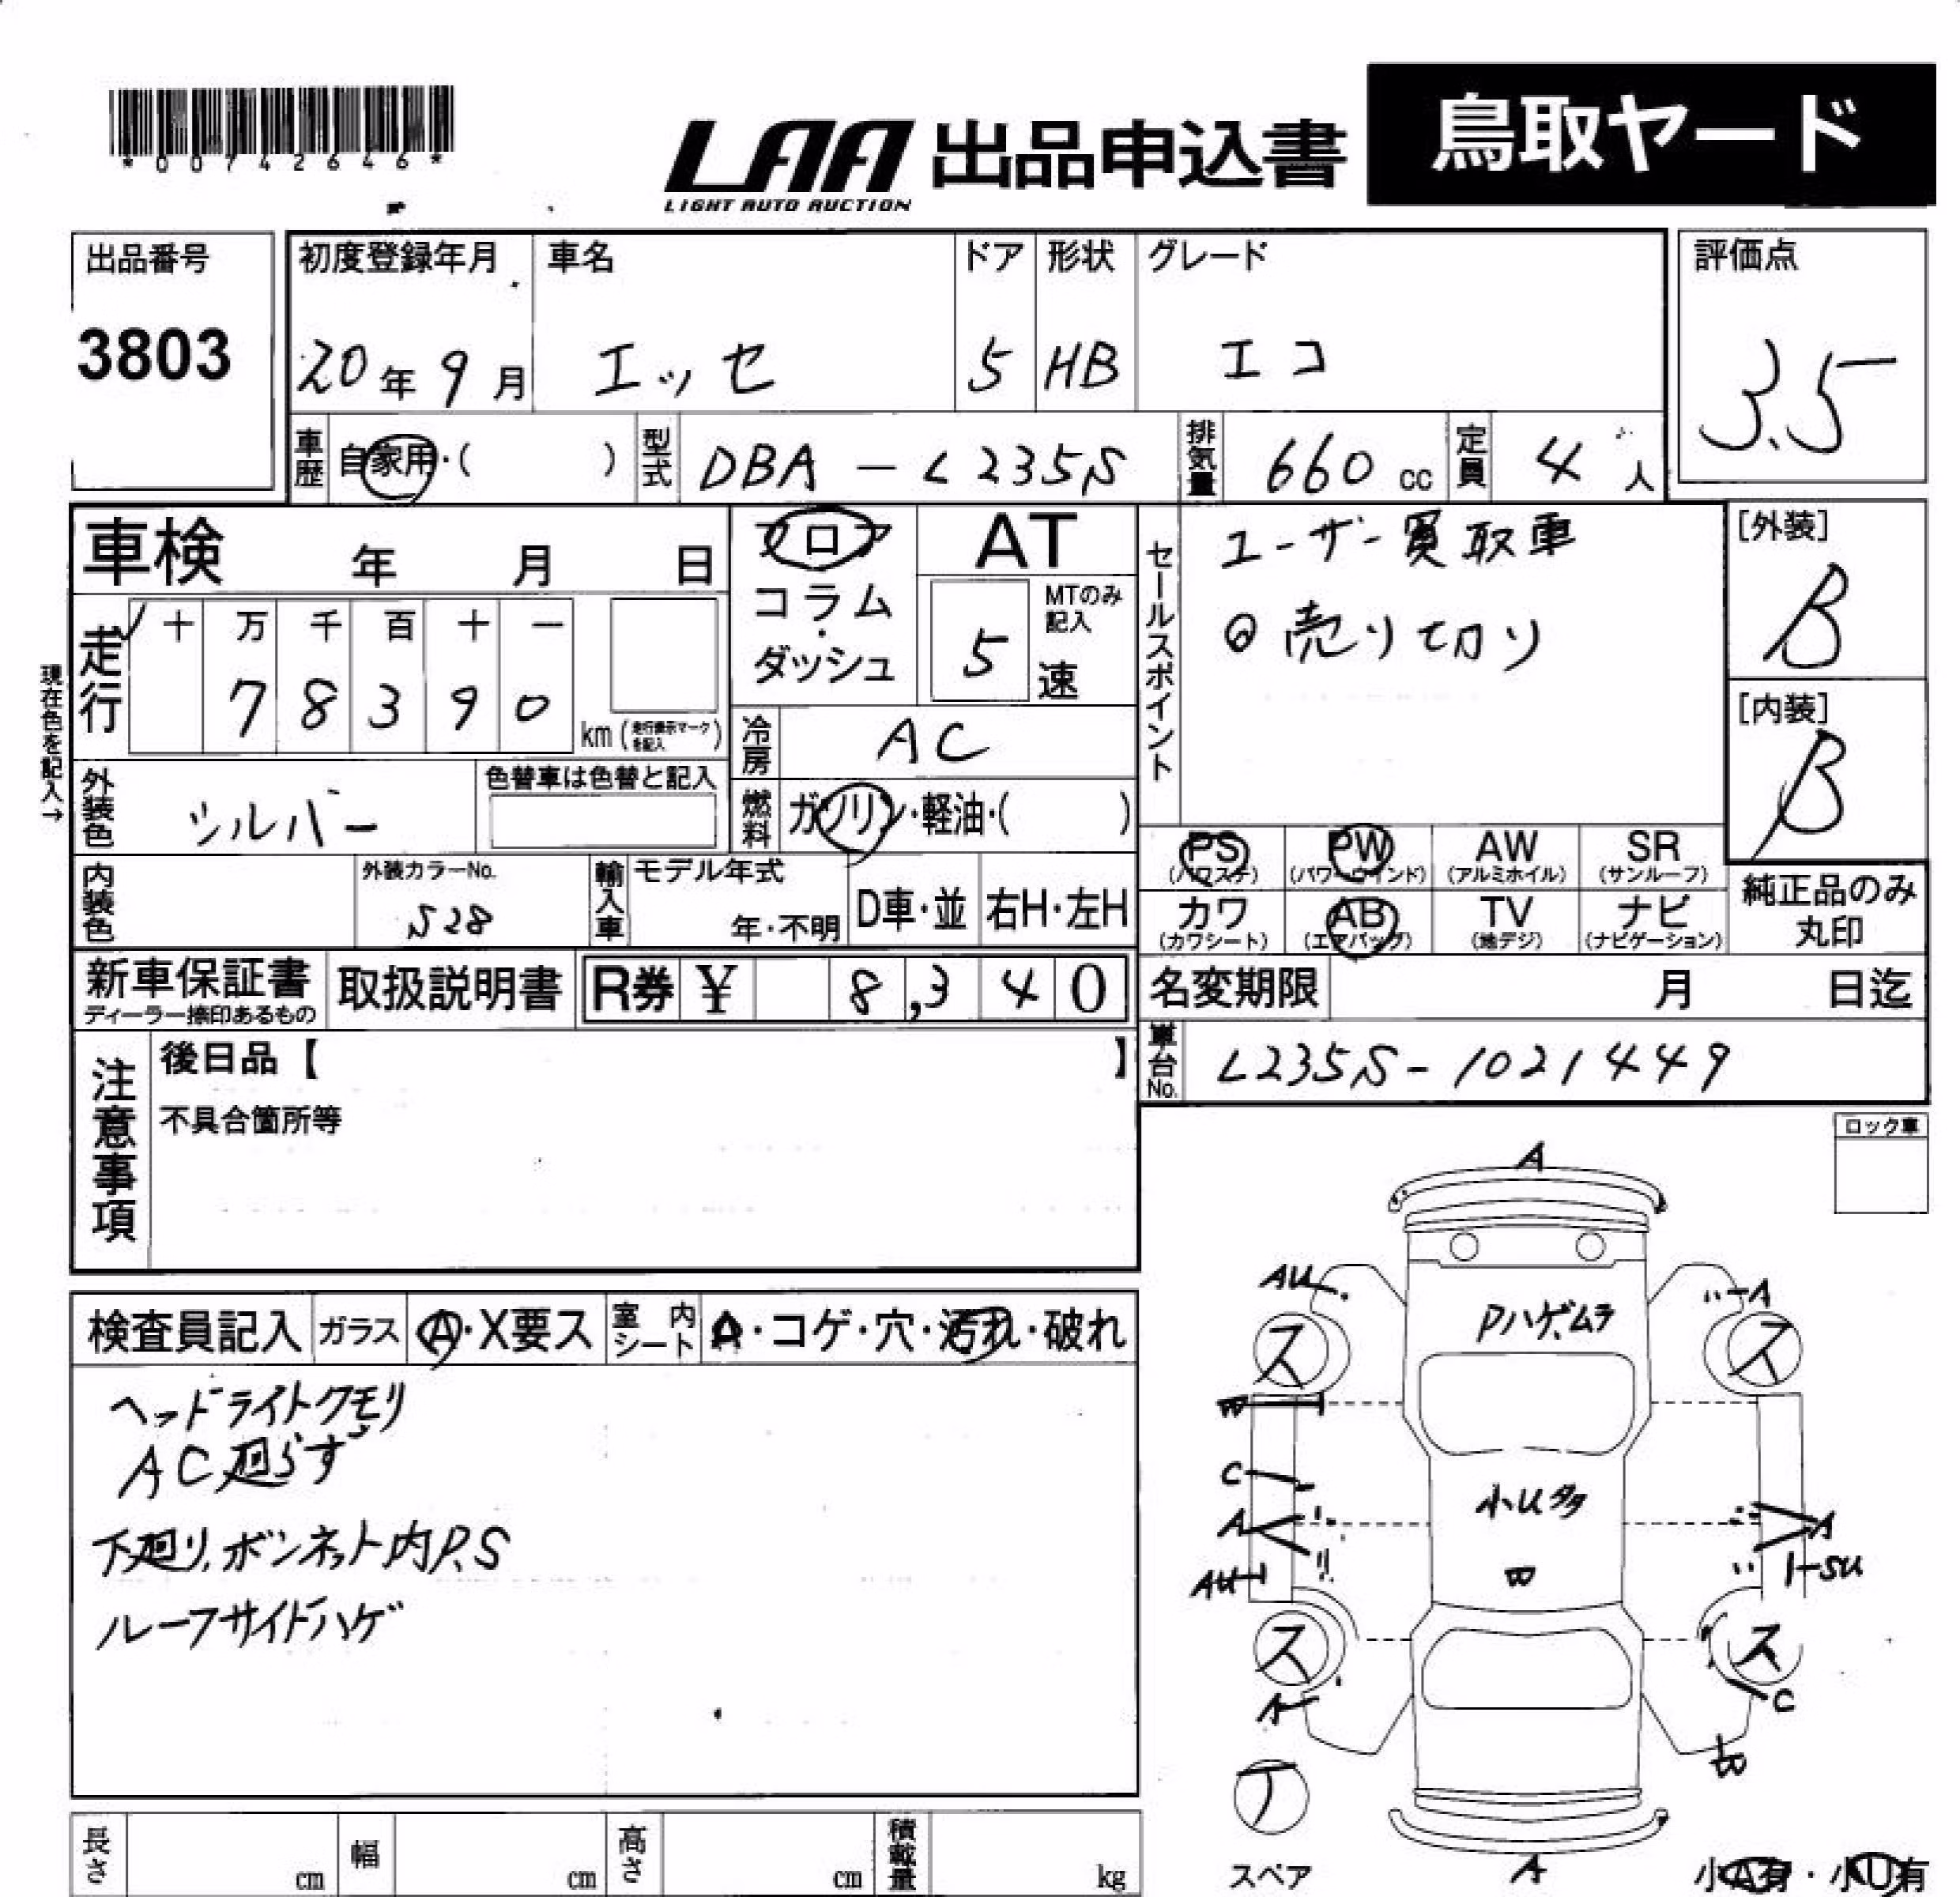 *00742646*
LAA 出品申込書 鳥取ヤード
LIGHT AUTO AUCTION
出品番号 初度登録年月 車名 ドア 形状 グレード 評価点
3803 20年9月 エッセ 5 HB エコ 3.5
車歴 自家用・( ) 型式 DBA-L235S 排気量 660cc 定員 4人
車検 年 月 日 フロア AT セールスポイント ユーザー買取車 [外装]
コラム・ダッシュ 5速 MTのみ記入 売り切り B
現在色を記入→
走行 十 万 千 百 十 一
7 8 3 9 0 km (走行表示マークを記入)
冷房 AC [内装] B
外装色 シルバー 色替車は色替と記入 燃料 ガソリン・軽油・( )
PS PW AW SR
(パワステ) (パワーウインド) (アルミホイル) (サンルーフ)
内装色 外装カラーNo. S28 輸入車 モデル年式 年・不明 D車・並 右H・左H
カワ AB TV ナビ 純正品のみ丸印
(カワシート) (エアバッグ) (地デジ) (ナビゲーション)
新車保証書 取扱説明書 R券 ¥ 8,340 名変期限 月 日迄
ディーラー捺印あるもの
車台No. L235S-1021449
注意事項 後日品【 】
不具合箇所等
ロック車
検査員記入 ガラス A・X要ス 室内シート A・コゲ・穴・汚れ・破れ
ヘッドライトクモリ
AC廻らず
下廻り、ボンネット内P,S
ルーフサイドハゲ
A
AU A
Pハゲ、ムラ
ス ス
B
C
小U多々
A A
AU B SU
ス ス
A C
B
ア
スペア A 小A有・小U有
長さ cm 幅 cm 高さ cm 積載量 kg